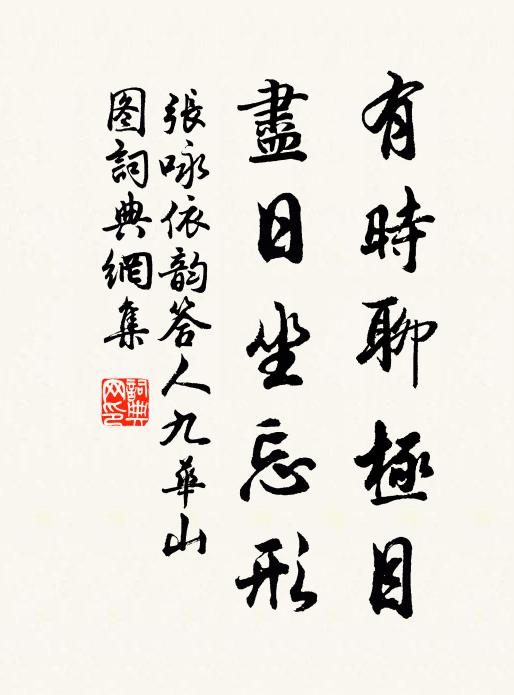 有時聊極目
盡日坐忘形
張咏依韵答人九華山
图詞典網集
詞典网印